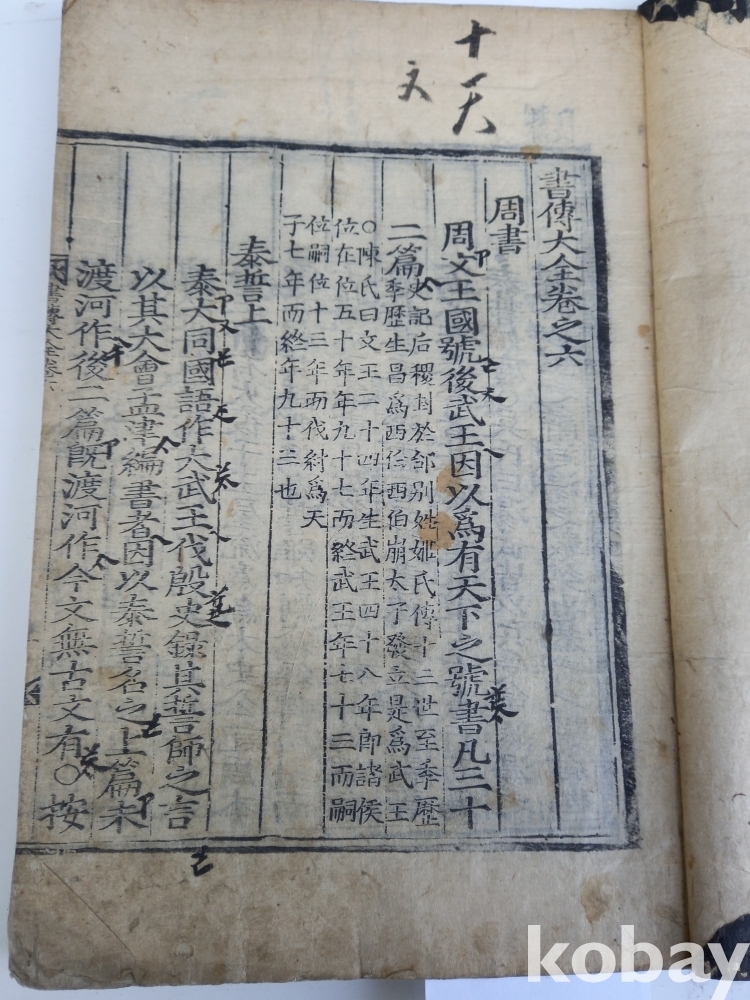 十一天
文
書傳大全卷之六
周書
周文王國號後武王因以爲有天下之號書凡三十
二篇
史記后稷封於邰別姓姬氏傳十三世至季歷
季歷生昌爲西伯西伯崩太子發立是爲武王
○陳氏曰文王二十四年生武王四十八年卽諸侯
位在位五十年年九十七而終武王年七十三而嗣
位嗣位十三年而伐紂爲天
子七年而終年九十三也
泰誓上
泰大同國語作大武王伐殷史錄其誓師之言
以其大會孟津編書者因以泰誓名之上篇未
渡河作後二篇旣渡河作今文無古文有○按
書傳大全卷六
kobay